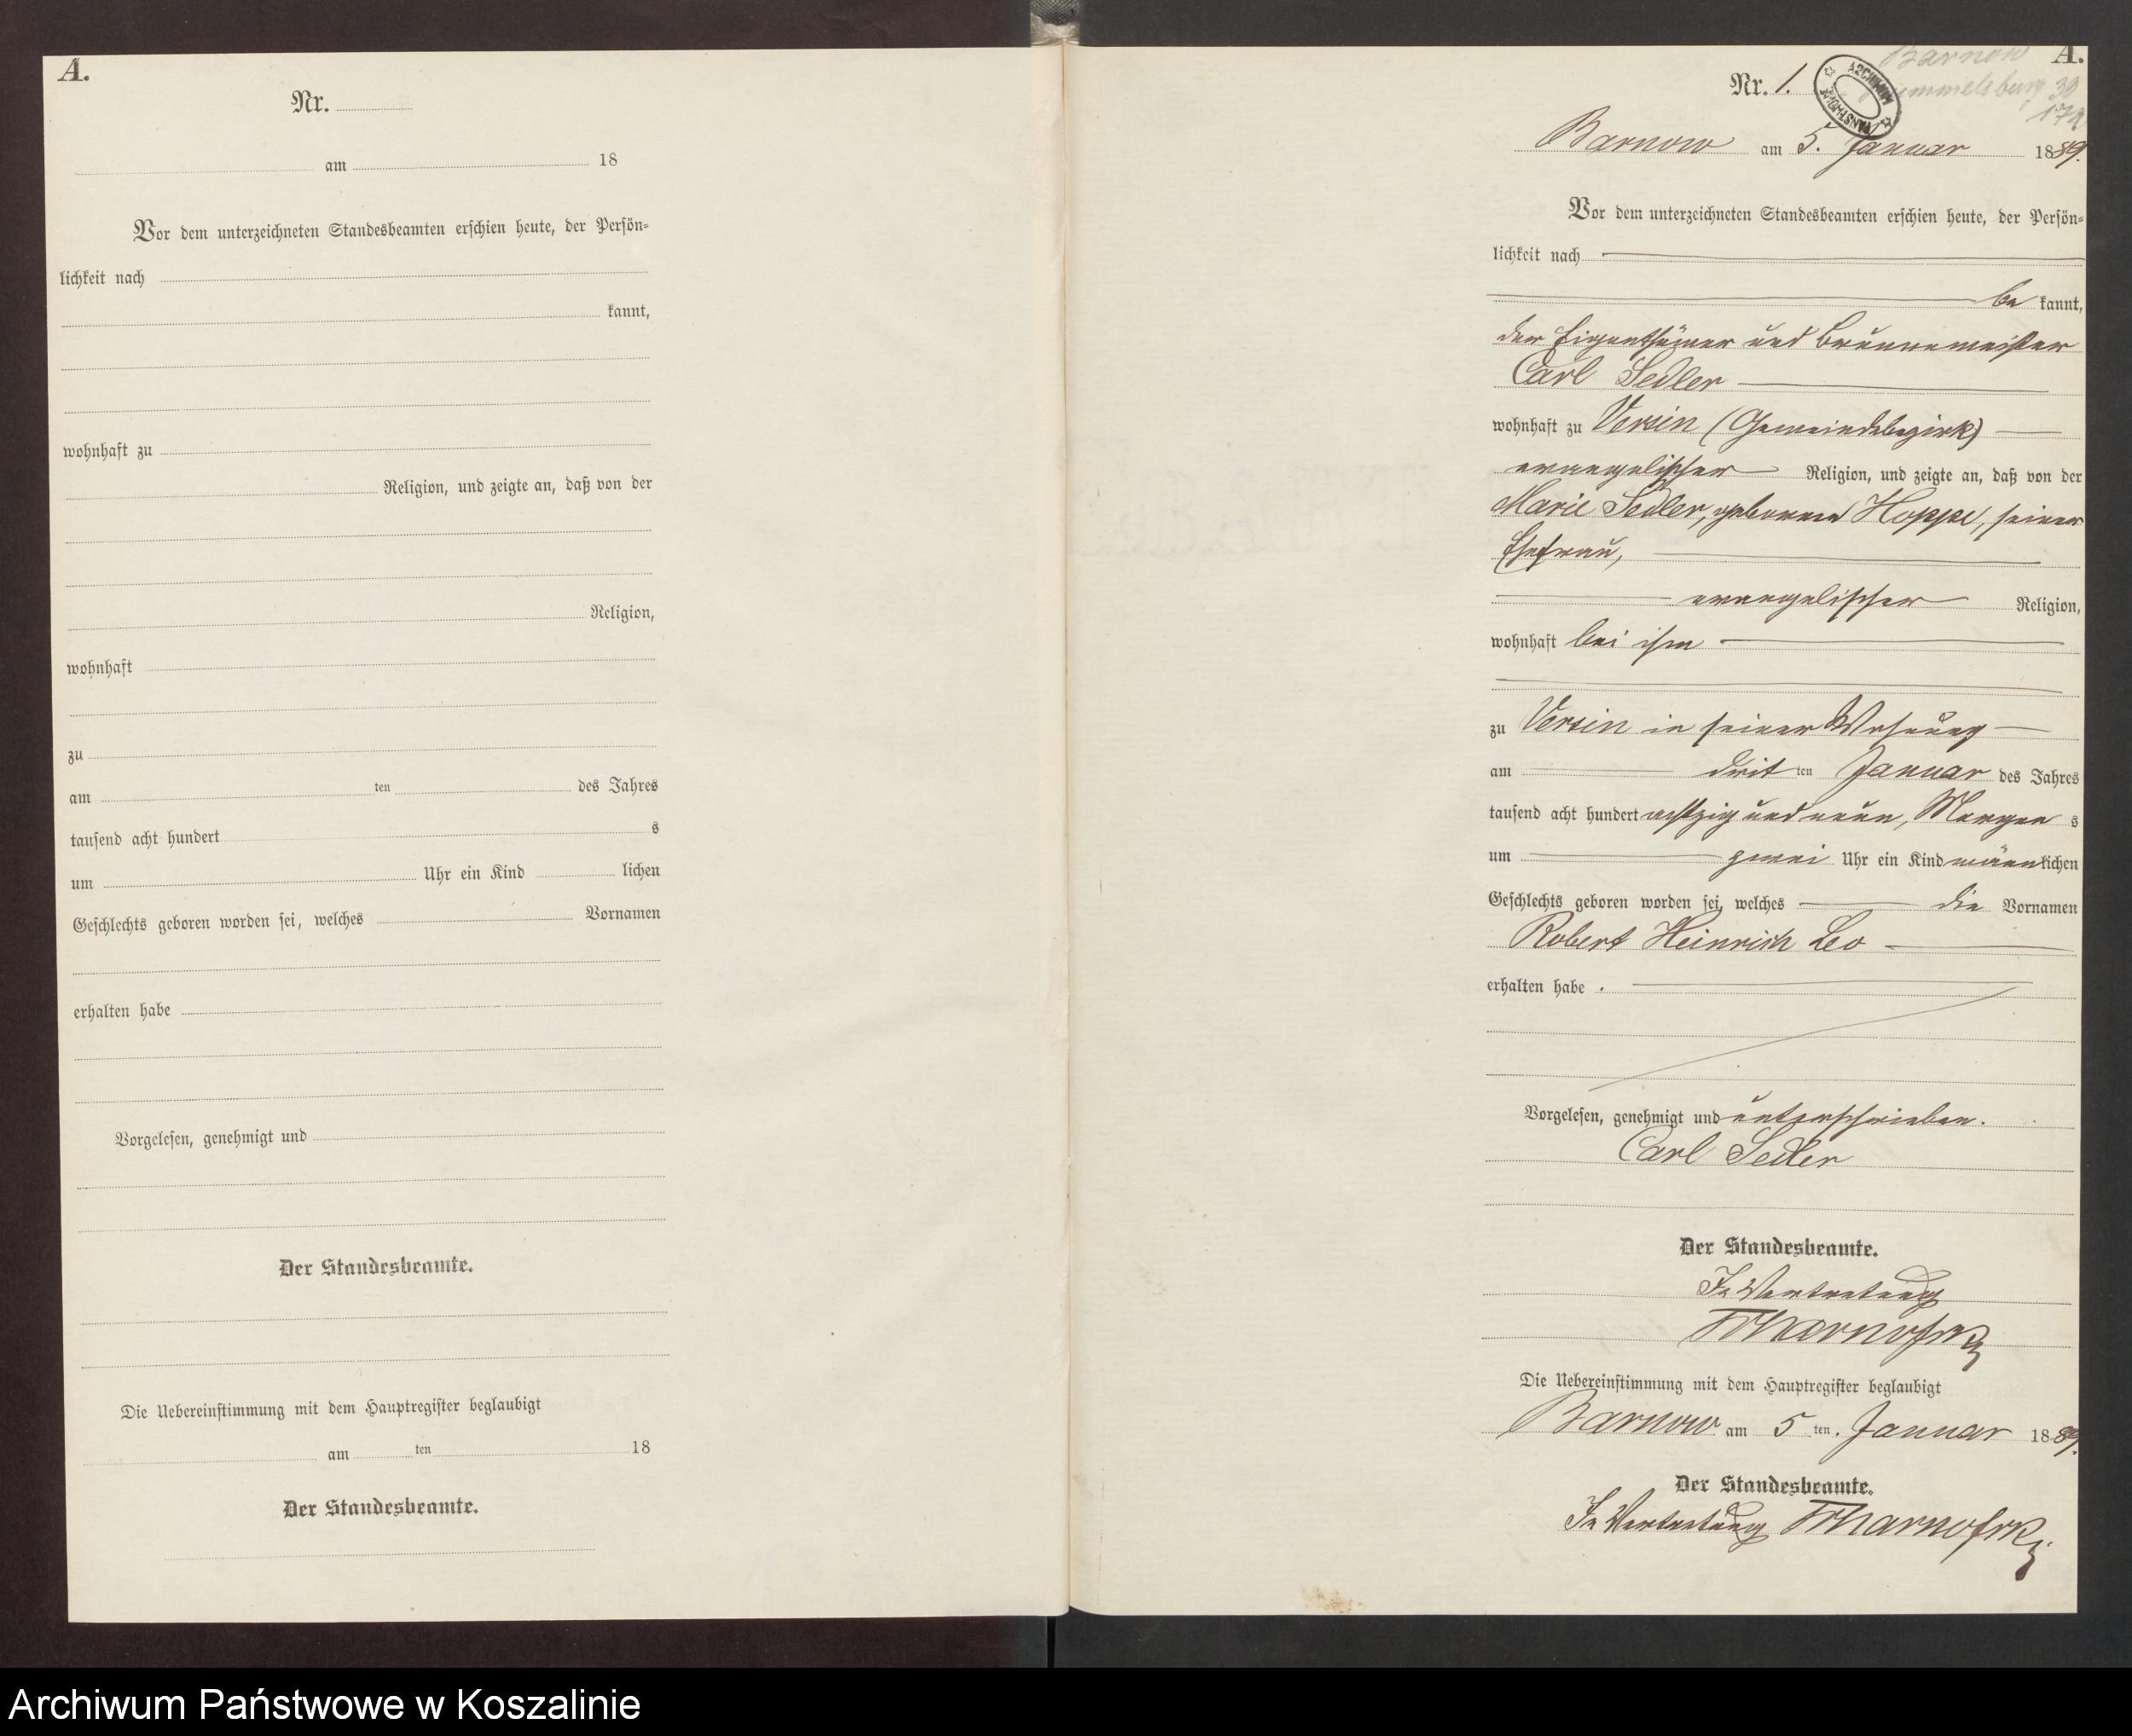 A.
Nr.
am 18
Vor dem unterzeichneten Standesbeamten erschien heute, der Persön-
lichkeit nach
kannt,
wohnhaft zu
Religion, und zeigte an, daß von der
Religion,
wohnhaft
zu
am ten des Jahres
tausend acht hundert s
um Uhr ein Kind lichen
Geschlechts geboren worden sei, welches Vornamen
erhalten habe
Vorgelesen, genehmigt und
Der Standesbeamte.
Die Uebereinstimmung mit dem Hauptregister beglaubigt
am ten 18
Der Standesbeamte.
Barnow A.
Nr. 1. ARCHIWUM
Barnow am 5. Januar 1889.
Vor dem unterzeichneten Standesbeamten erschien heute, der Persön-
lichkeit nach
be kannt,
der Eigenthümer und Brunnenmeister
Carl Sedler
wohnhaft zu Versin (Gemeindebezirk)
evangelischer Religion, und zeigte an, daß von der
Marie Sedler, geborenen Hoppe, seiner
Ehefrau,
evangelischer Religion,
wohnhaft bei ihm
zu Versin in seiner Wohnung
am drit ten Januar des Jahres
tausend acht hundert achtzig und neun, Morgen s
um zwei Uhr ein Kind männlichen
Geschlechts geboren worden sei, welches die Vornamen
Robert Heinrich Leo
erhalten habe .
Vorgelesen, genehmigt und unterschrieben.
Carl Sedler
Der Standesbeamte.
In Vertretung
Die Uebereinstimmung mit dem Hauptregister beglaubigt
Barnow am 5 ten. Januar 1889.
Der Standesbeamte.
In Vertretung
Archiwum Państwowe w Koszalinie